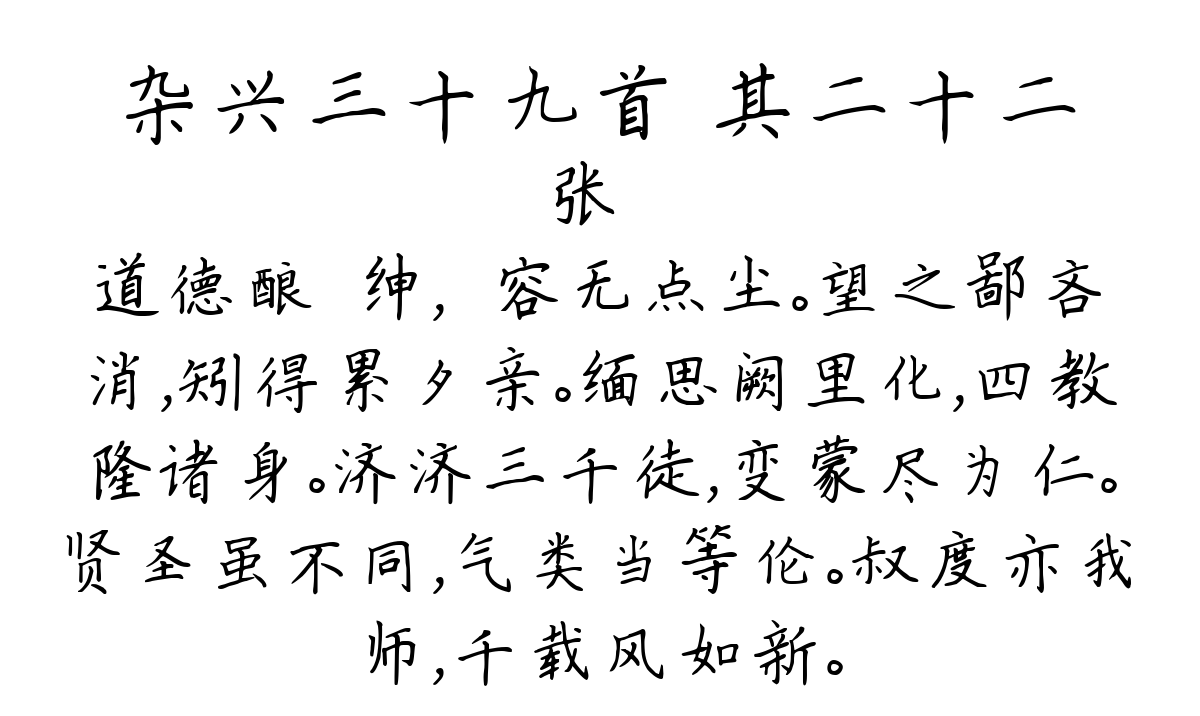 杂兴三十九首 其二十二
张
道德酿 绅，容无点尘。望之鄙吝
消，矧得累夕亲。缅思阙里化，四教
隆诸身。济济三千徒，变蒙尽为仁。
贤圣虽不同，气类当等伦。叔度亦我
师，千载风如新。